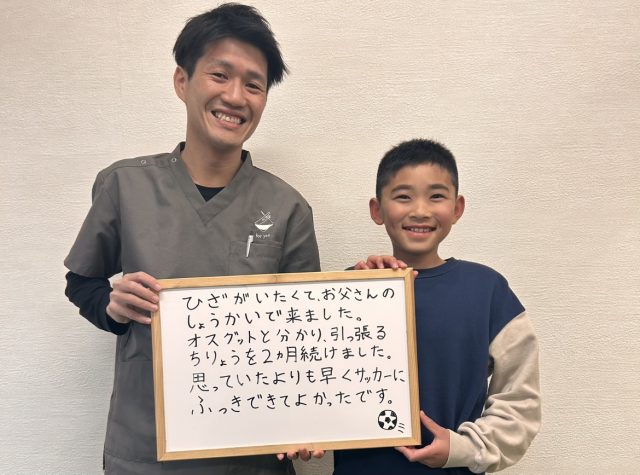 ひざがいたくて、お父さんの
しょうかいで来ました。
オスグットと分かり、引っ張る
ちりょうを2ヵ月続けました。
思っていたよりも早くサッカーに
ふっきできてよかったです。
for you